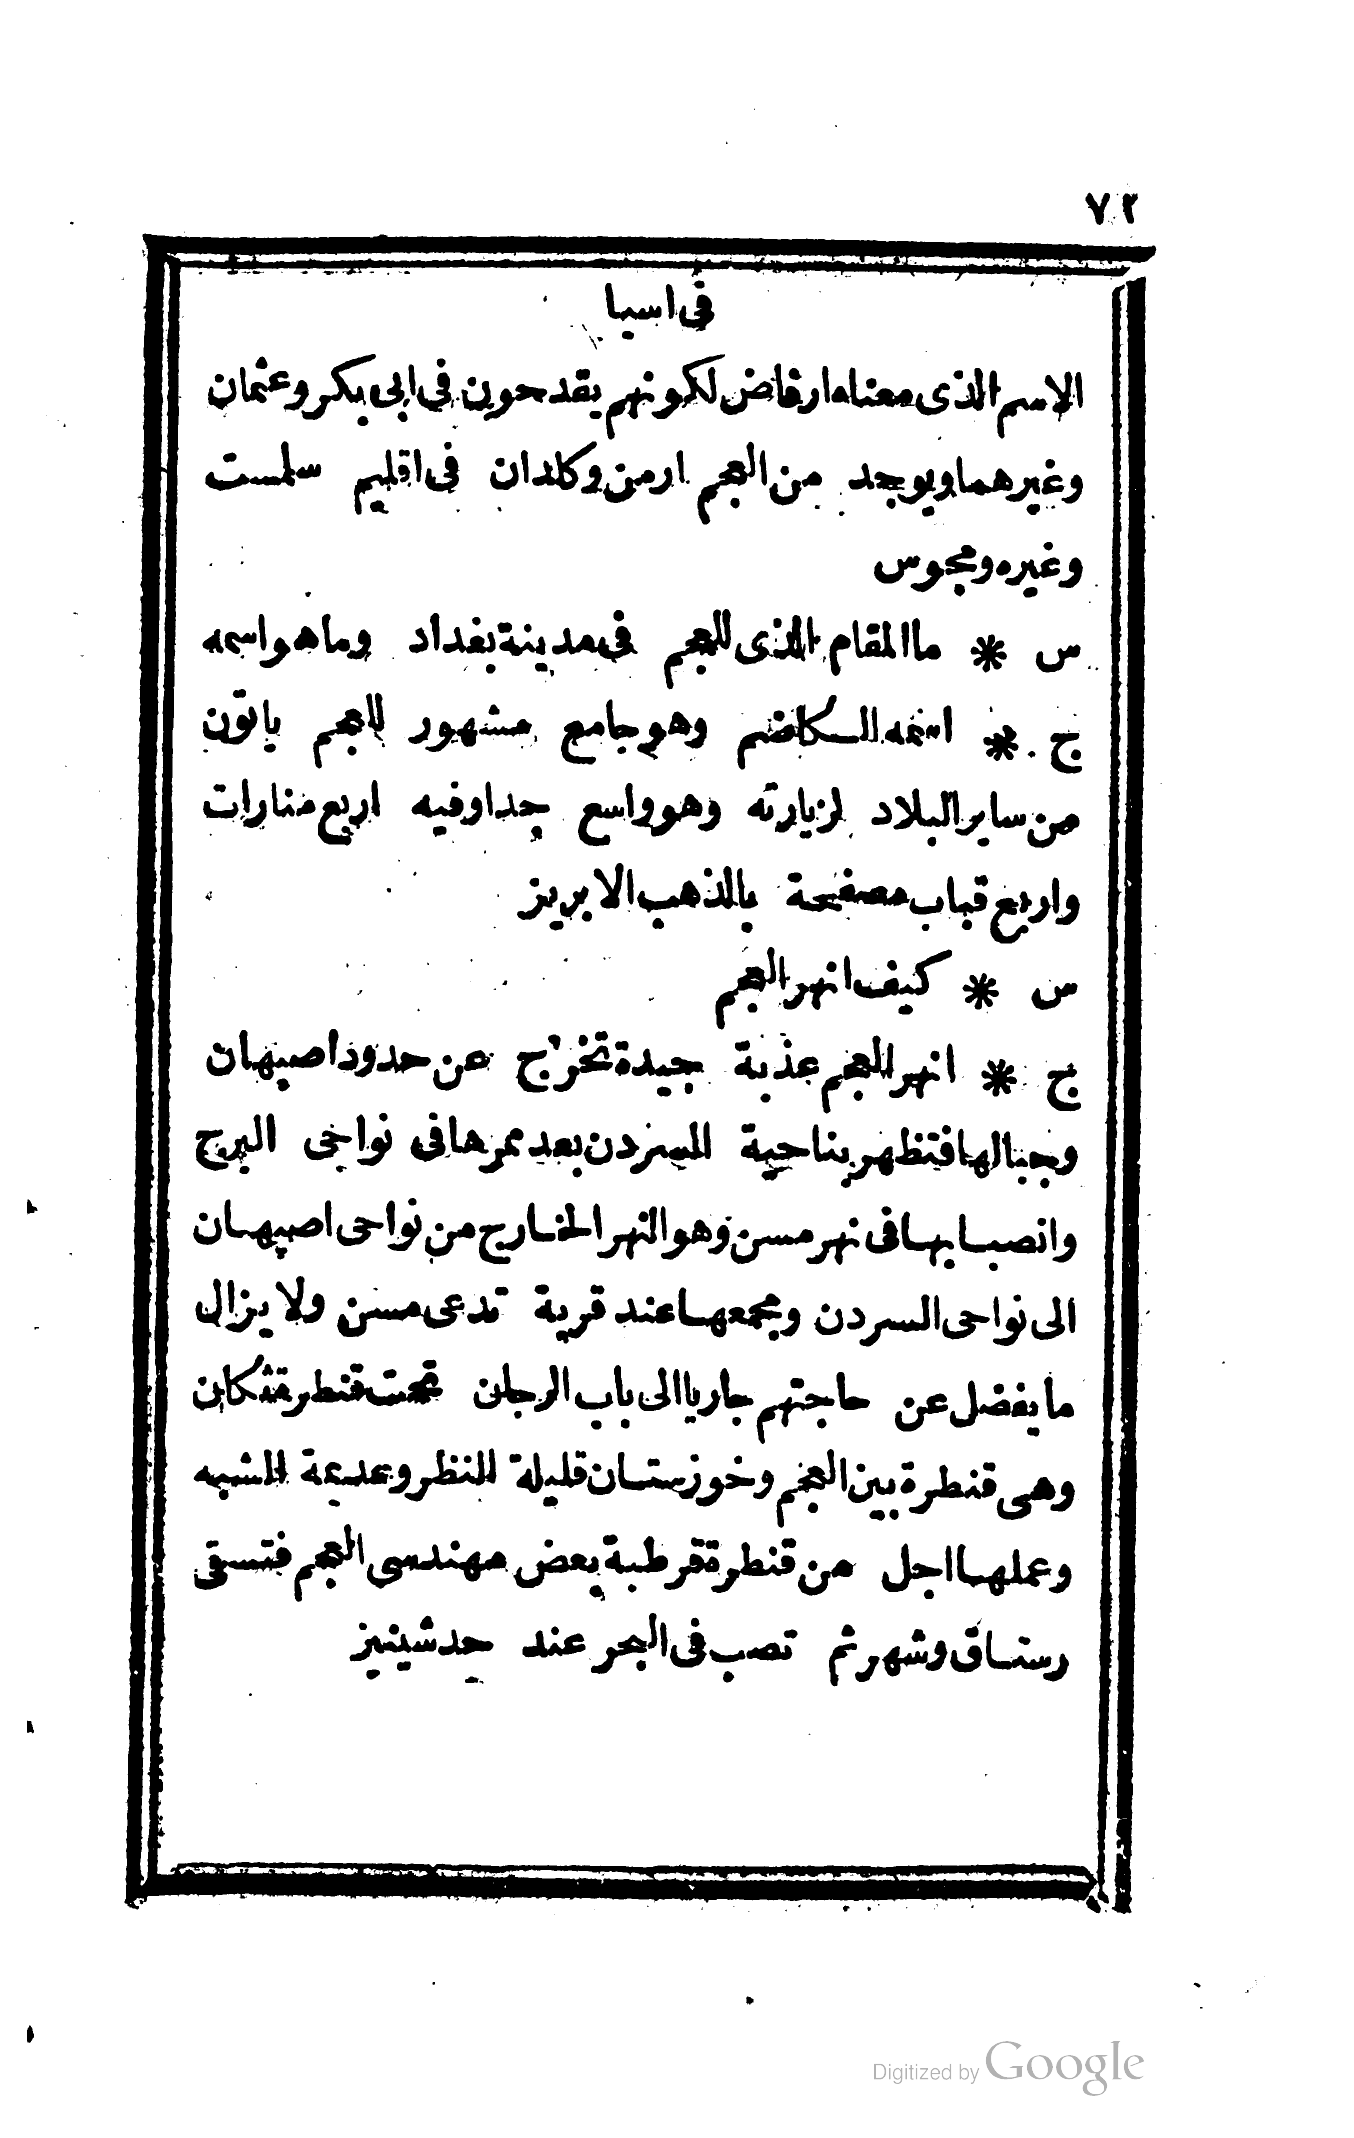 ٧٢
فى اسيا
الاسم الذى معناه ارفاض لكونهم يقدحون فى ابى بكر وعثمان
وغيرهما ويوجد من العجم ارمن وكلدان فى اقليم سلمست
وغيره ومجوس
س * ما المقام الذى للعجم فى مدينة بغداد وما هو اسمه
ج * اسمه الكاضم وهو جامع مشهور للعجم ياتون
من ساير البلاد لزيارته وهو واسع جدا وفيه اربع منارات
واربع قباب مصفحة بالذهب الابريز
س * كيف انهر العجم
ج * انهر العجم عذبة جيدة تخرج عن حدود اصبهان
وجبالها فتظهر بناحية السردن بعد ممرها فى نواحى البرج
وانصبابها فى نهر مسن وهو النهر الخارج من نواحى اصبهان
الى نواحى السردن ومجمعها عند قرية تدعى مسن ولا يزال
ما يفضل عن حاجتهم جاريا الى باب الرجان تحت قنطرة ثكان
وهى قنطرة بين العجم وخوزستان قليلة النظر وعديمة الشبه
وعملها اجل من قنطرة قرطبة بعض مهندسى العجم فتسقى
رستاق وشهر ثم تصب فى البحر عند حد شينيز
Digitized by Google